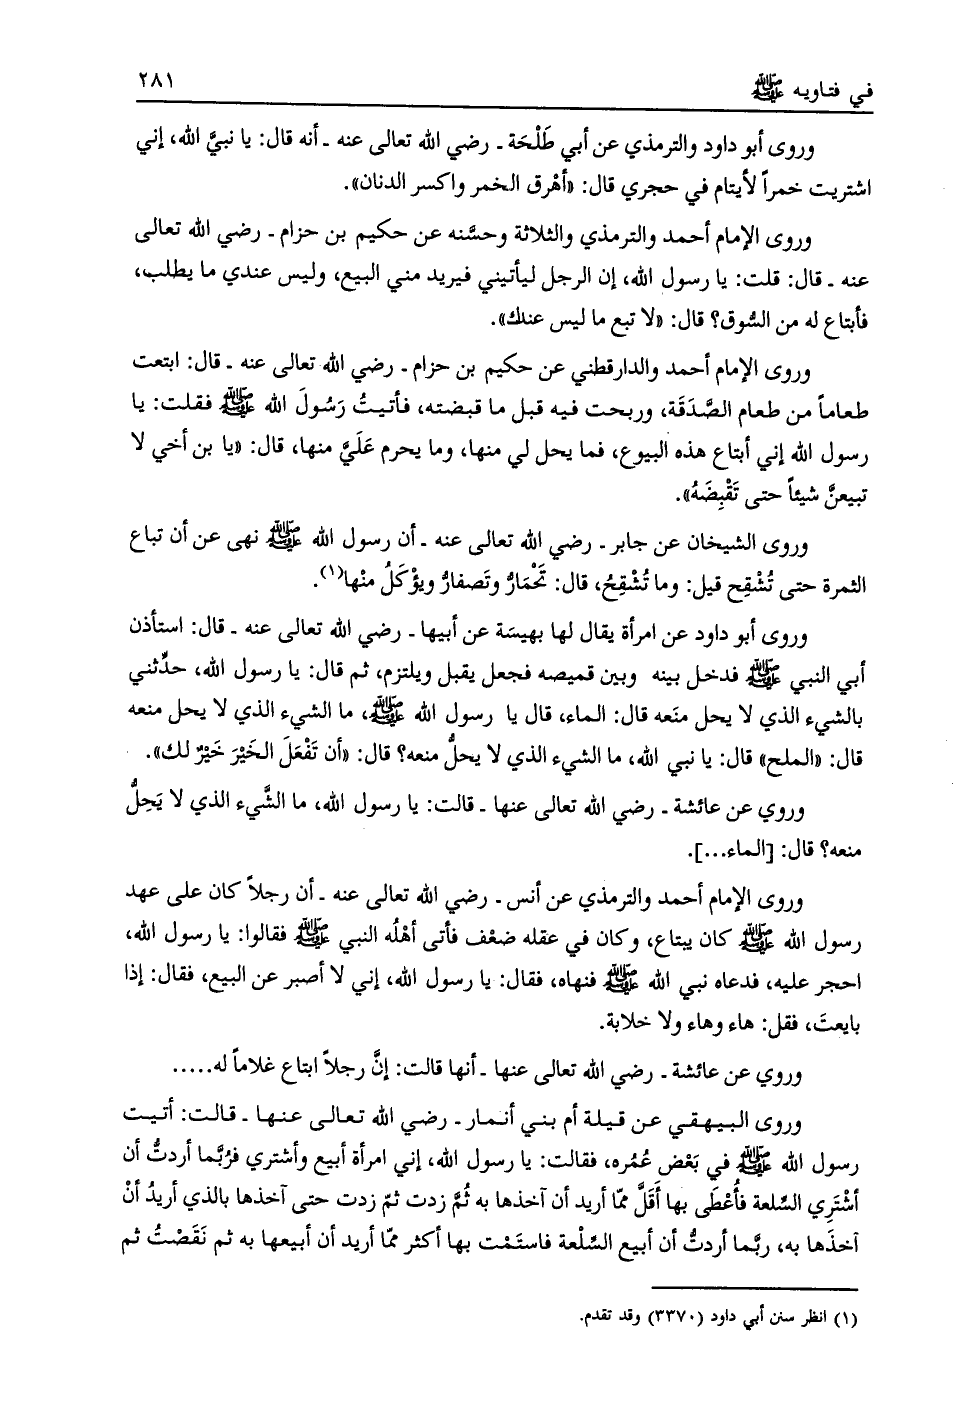 في فتاويه ﷺ
٢٨١
وروى أبو داود والترمذي عن أبي طَلْحَة ـ رضي الله تعالى عنه ـ أنه قال: يا نبيَّ الله، إني
اشتريت خمراً لأيتام في حجري قال: «أهْرق الخمر واكسر الدنان».
وروى الإمام أحمد والترمذي والثلاثة وحسَّنه عن حكيم بن حزام ـ رضي الله تعالى
عنه ـ قال: قلت: يا رسول الله، إن الرجل ليأتيني فيريد مني البيع، وليس عندي ما يطلب،
فأبتاع له من السُّوق؟ قال: «لا تبع ما ليس عندك».
وروى الإمام أحمد والدارقطني عن حكيم بن حزام ـ رضي الله تعالى عنه ـ قال: ابتعت
طعاماً من طعام الصَّدَقَة، وربحت فيه قبل ما قبضته، فأتيتُ رَسُولَ الله ﷺ فقلت: يا
رسول الله إني أبتاع هذه البيوع، فما يحل لي منها، وما يحرم عَلَيَّ منها، قال: «يا بن أخي لا
تبيعنَّ شيئاً حتى تَقْبِضَهُ».
وروى الشيخان عن جابر ـ رضي الله تعالى عنه ـ أن رسول الله ﷺ نهى عن أن تباع
الثمرة حتى تُشْقِح قيل: وما تُشْقِحُ، قال: تَحْمَارُّ وتَصفارُّ ويؤْكَلُ منْها(١).
وروى أبو داود عن امرأة يقال لها بهيسَة عن أبيها ـ رضي الله تعالى عنه ـ قال: استأذن
أبي النبي ﷺ فدخل بينه وبين قميصه فجعل يقبل ويلتزم، ثم قال: يا رسول الله، حدِّثني
بالشيء الذي لا يحل منَعه قال: الماء، قال يا رسول الله ﷺ، ما الشيء الذي لا يحل منعه
قال: «الملح» قال: يا نبي الله، ما الشيء الذي لا يحلُّ منعه؟ قال: «أن تَفْعَلَ الخَيْرَ خَيْرٌ لك».
وروي عن عائشة ـ رضي الله تعالى عنها ـ قالت: يا رسول الله، ما الشَّيء الذي لا يَحِلُّ
منعه؟ قال: [الماء...].
وروى الإمام أحمد والترمذي عن أنس ـ رضي الله تعالى عنه ـ أن رجلاً كان على عهد
رسول الله ﷺ كان يبتاع، وكان في عقله ضعْف فأتى أهْلُه النبي ﷺ فقالوا: يا رسول الله،
احجر عليه، فدعاه نبي الله ﷺ فنهاه، فقال: يا رسول الله، إني لا أصبر عن البيع، فقال: إذا
بايعتَ، فقل: هاء وهاء ولا خلابة.
وروي عن عائشة ـ رضي الله تعالى عنها ـ أنها قالت: إنَّ رجلاً ابتاع غلاماً له.....
وروى البيهقي عن قيلة أم بني أنمار ـ رضي الله تعالى عنها ـ قالت: أتيت
رسول الله ﷺ في بَعْض عُمُره، فقالت: يا رسول الله، إني امرأة أبيع وأشتري فرُبَّما أردتُّ أن
أشْتَرِي السِّلعة فأُعْطَى بها أَقَلَّ ممّا أريد أن آخذها به ثُمَّ زدت ثمّ زدت حتى آخذها بالذي أريدُ أنْ
آخذَها به، ربَّما أردتُّ أن أبيع السِّلْعة فاستَمْت بها أكثر ممّا أريد أن أبيعها به ثم نَقَصْتُ ثم
(١) انظر سنن أبي داود (٣٣٧٠) وقد تقدم.